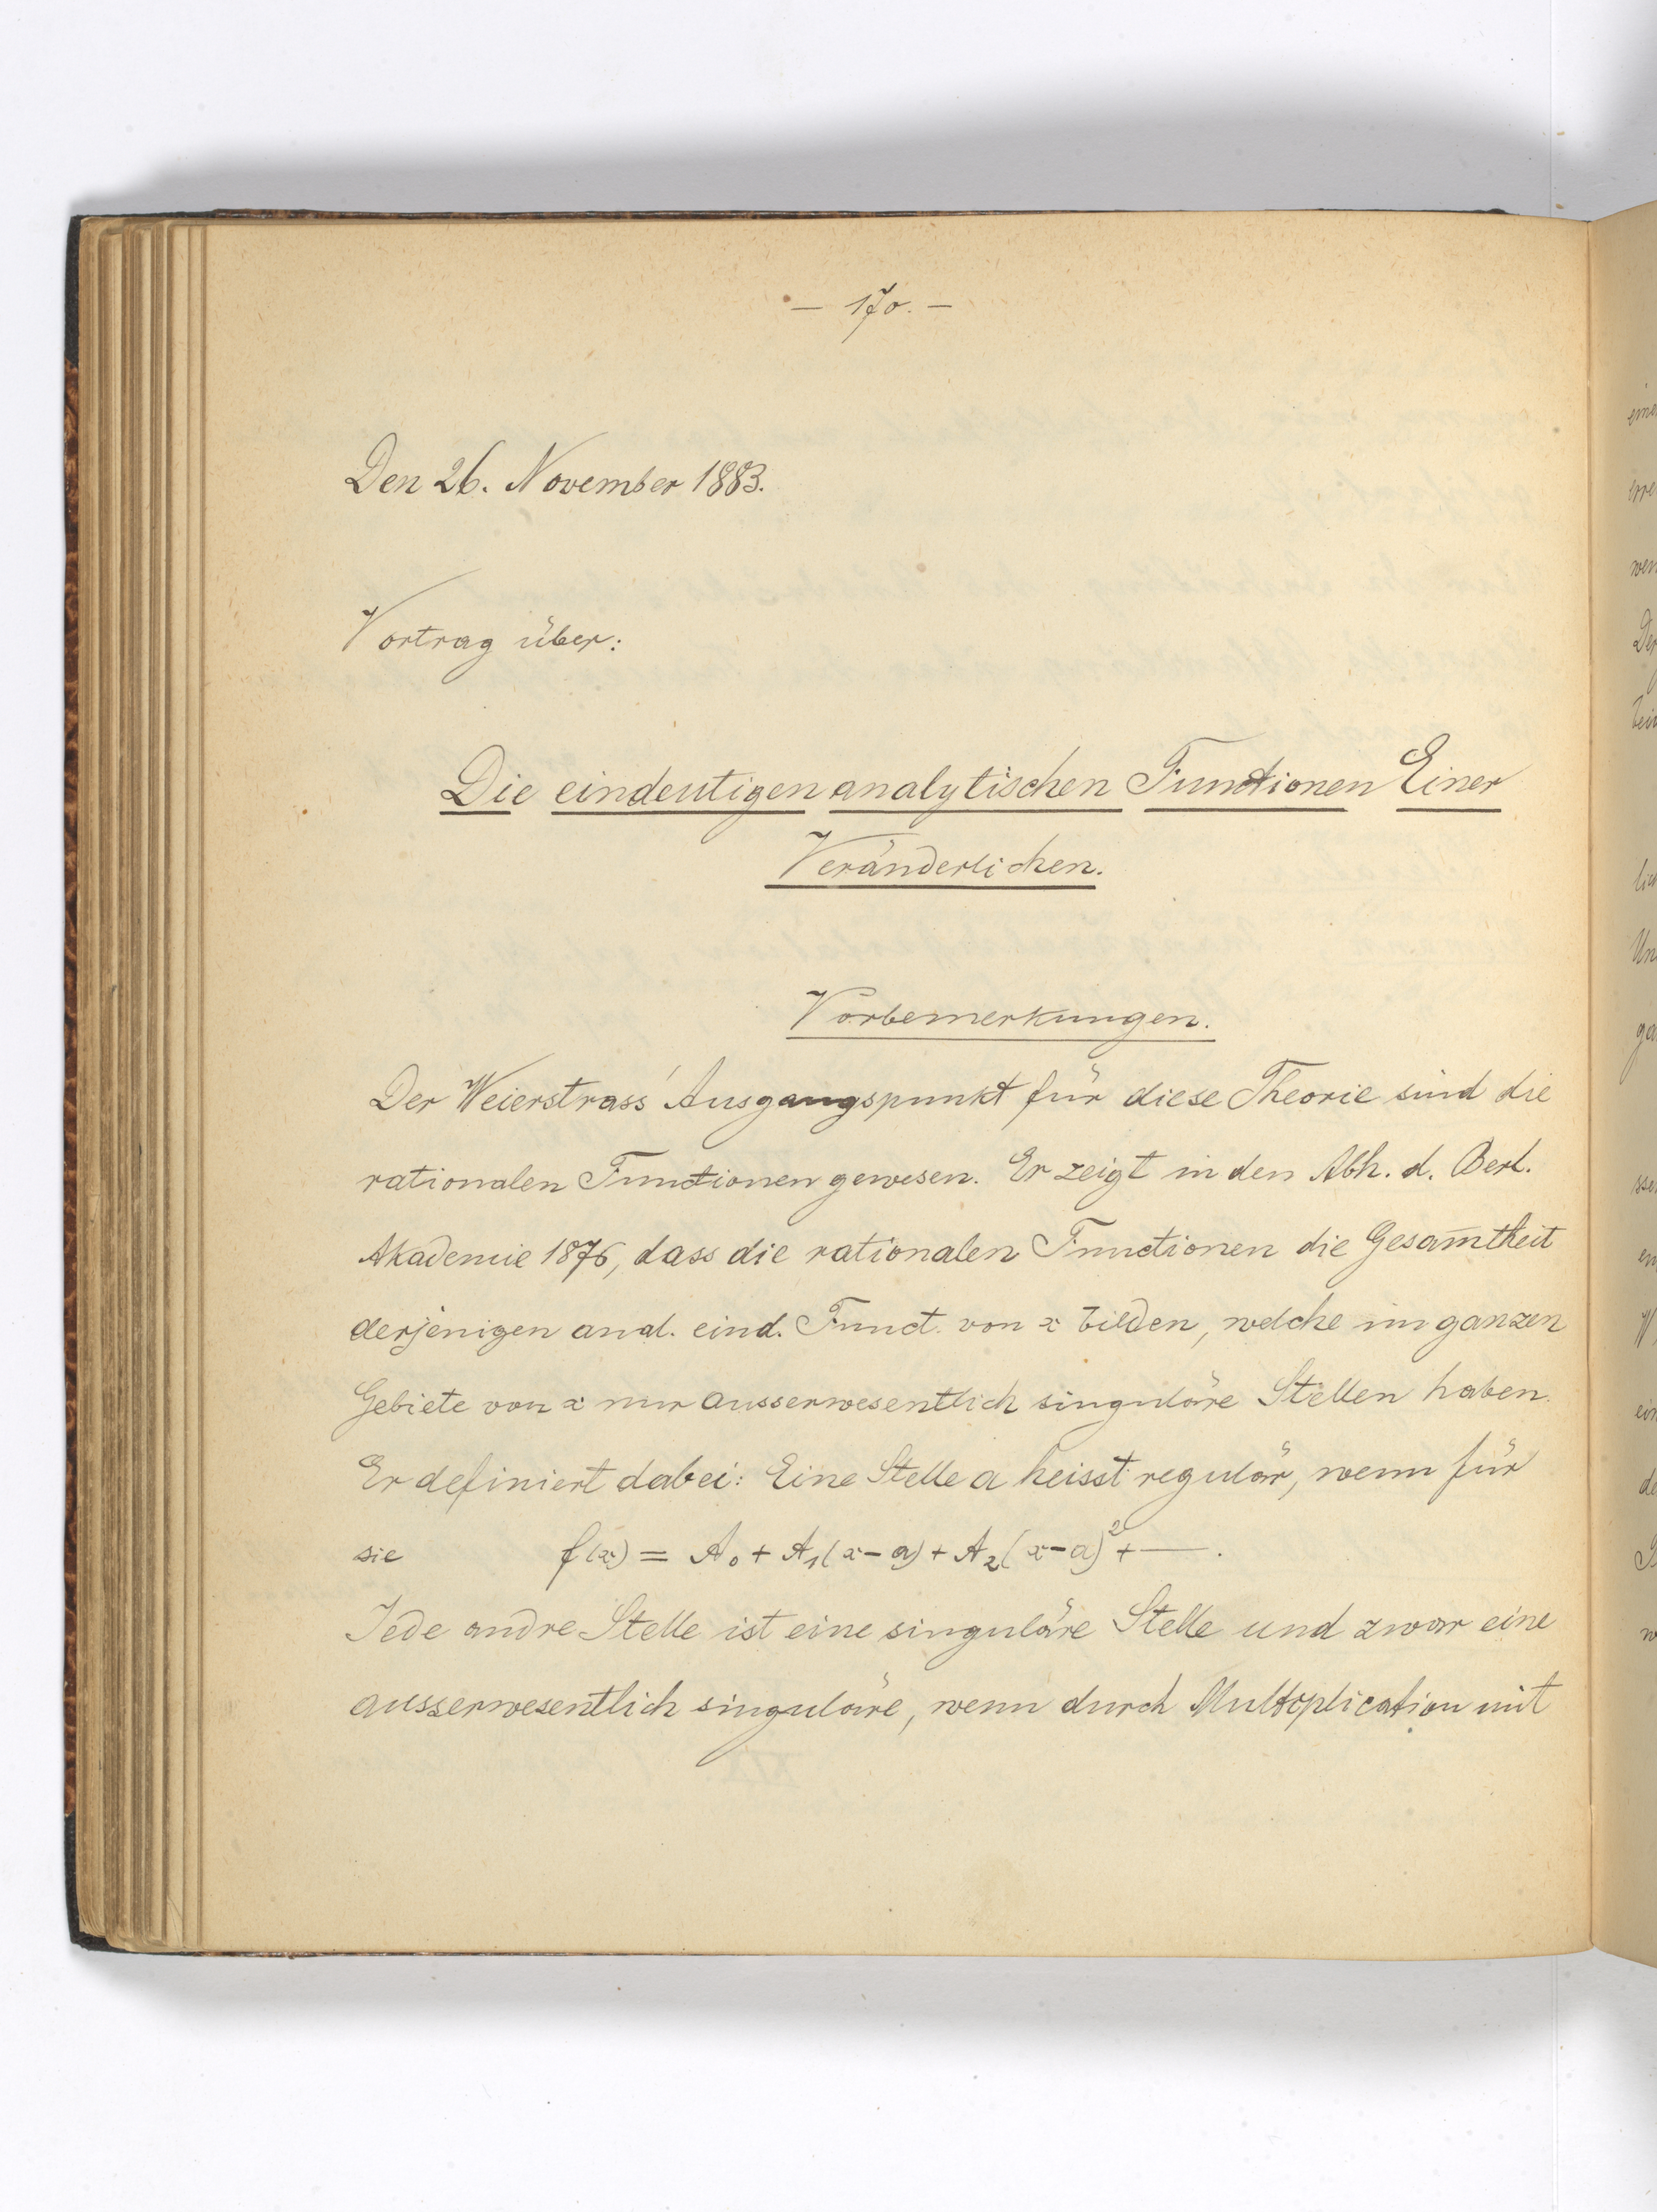 — 170. —
Den 26. November 1883.
Vortrag über:
Die eindeutigen analytischen Functionen Einer
Veränderlichen.
Vorbemerkungen.
Der Weierstrass' Ausgangspunkt für diese Theorie sind die
rationalen Functionen gewesen. Er zeigt in den Abh. d. Berl.
Akademie 1876, dass die rationalen Functionen die Gesam̅theit
derjenigen anal. eind. Funct. von x bilden, welche im ganzen
Gebiete von x nur ausserwesentlich singuläre Stellen haben.
Er definiert dabei: Eine Stelle a heisst regulär, wenn für
sie f(x) = A₀ + A₁(x-a) + A₂(x-a)² + —.
Jede andre Stelle ist eine singuläre Stelle und zwar eine
ausserwesentlich singuläre, wenn durch Multiplication mit